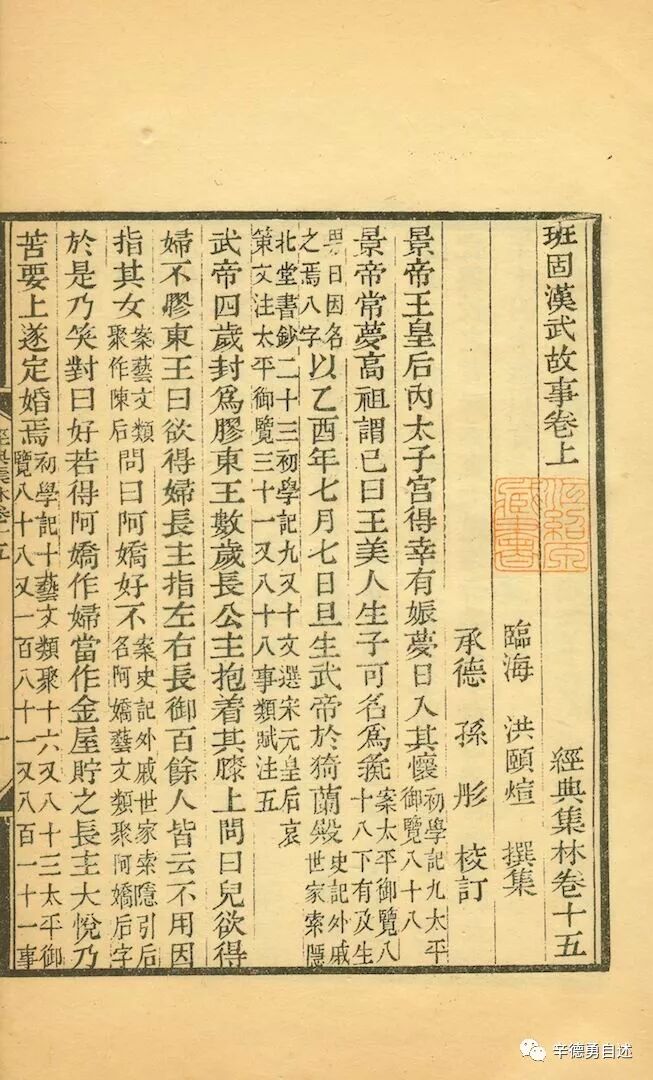 班固漢武故事卷上 經典集林卷十五
臨海 洪頤煊 撰集
承德 孫彤 校訂
景帝王皇后內太子宫得幸有娠夢日入其懷初學記九太平御覽八十八
景帝常夢高祖謂已曰王美人生子可名爲彘案太平御覽八十八下有及生
男日因名之焉八字以乙酉年七月七日旦生武帝於猗蘭殿史記外戚世家索隱
北堂書鈔二十三初學記九又十文選宋元皇后哀策文注太平御覽三十一又八十八事類賦注五
武帝四歲封爲膠東王數歲長公主抱着其膝上問曰兒欲得
婦不膠東王曰欲得婦長主指左右長御百餘人皆云不用因
指其女案藝文類聚作陳后問曰阿嬌好不案史記外戚世家索隱引后名阿嬌藝文類聚阿嬌后字
於是乃笑對曰好若得阿嬌作婦當作金屋貯之長主大悅乃
苦要上遂定婚焉初學記十藝文類聚十六又八十三太平御覽八十八又一百八十一又八百一十一事
辛德勇自述